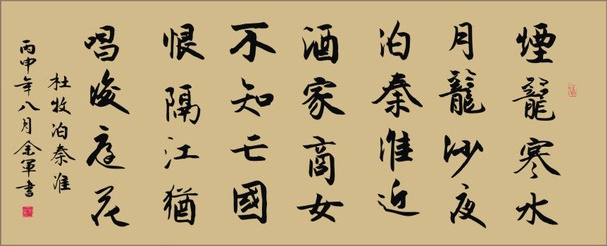 煙籠寒水
月籠沙夜
泊秦淮近
酒家商女
不知亡國
恨隔江猶
唱後庭花
杜牧泊秦淮
丙申年八月余軍書